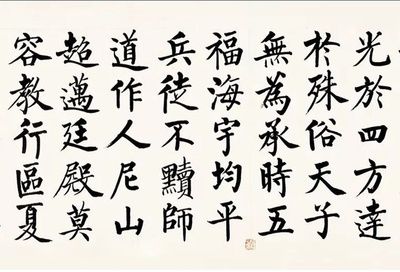 光於四方達
於殊俗天子
無為承時五
福海宇均平
兵徒不黷師
道作人尼山
超邁廷殿莫
容教行區夏